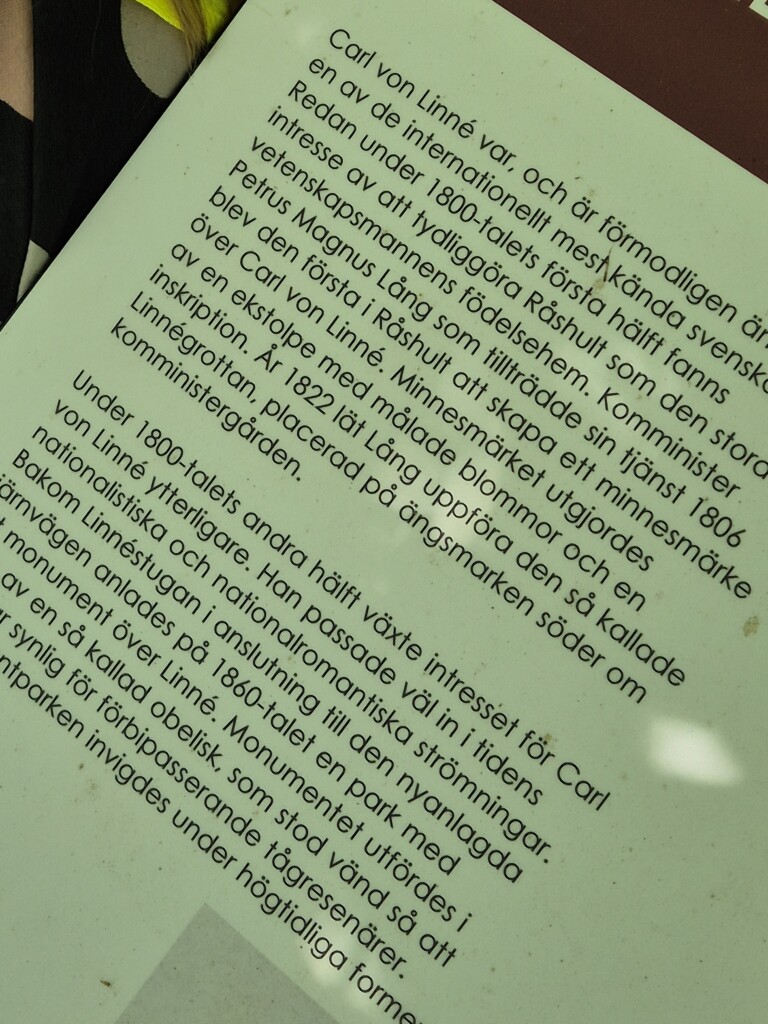 Carl von Linné var, och är förmodligen än
en av de internationellt mest kända svenska
Redan under 1800-talets första hälft fanns
intresse av att tydliggöra Råshult som den stora
vetenskapsmannens födelsehem. Komminister
Petrus Magnus Lång som tillträdde sin tjänst 1806
blev den första i Råshult att skapa ett minnesmärke
över Carl von Linné. Minnesmärket utgjordes
av en ekstolpe med målade blommor och en
inskription. År 1822 lät Lång uppföra den så kallade
Linnégrottan, placerad på ängsmarken söder om
komministergården.
Under 1800-talets andra hälft växte intresset för Carl
von Linné ytterligare. Han passade väl in i tidens
nationalistiska och nationalromantiska strömningar.
Bakom Linnéstugan i anslutning till den nyanlagda
järnvägen anlades på 1860-talet en park med
t monument över Linné. Monumentet utfördes i
av en så kallad obelisk, som stod vänd så att
ar synlig för förbipasserande tågresenärer.
ntparken invigdes under högtidliga forme